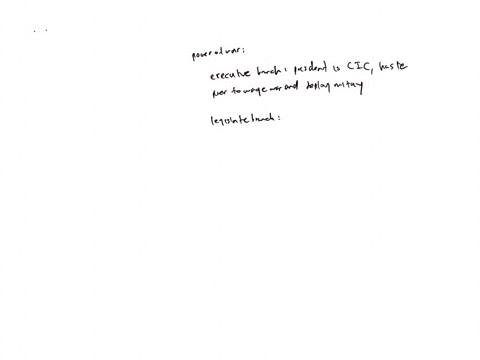 power of war:
executive branch: president is CIC, has the
power to wage war and deploy military
legislative branch: